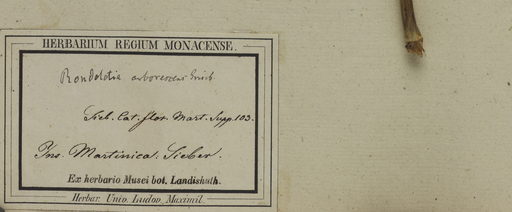 HERBARIUM REGIUM MONACENSE.
Rondeletia arborescens Griseb.
Sieb. Cat. flor. Mart. Supp. 103.
Ins. Martinica: Sieber.
Ex herbario Musei bot. Landishuth.
Herbar. Univ. Ludov. Maximil.